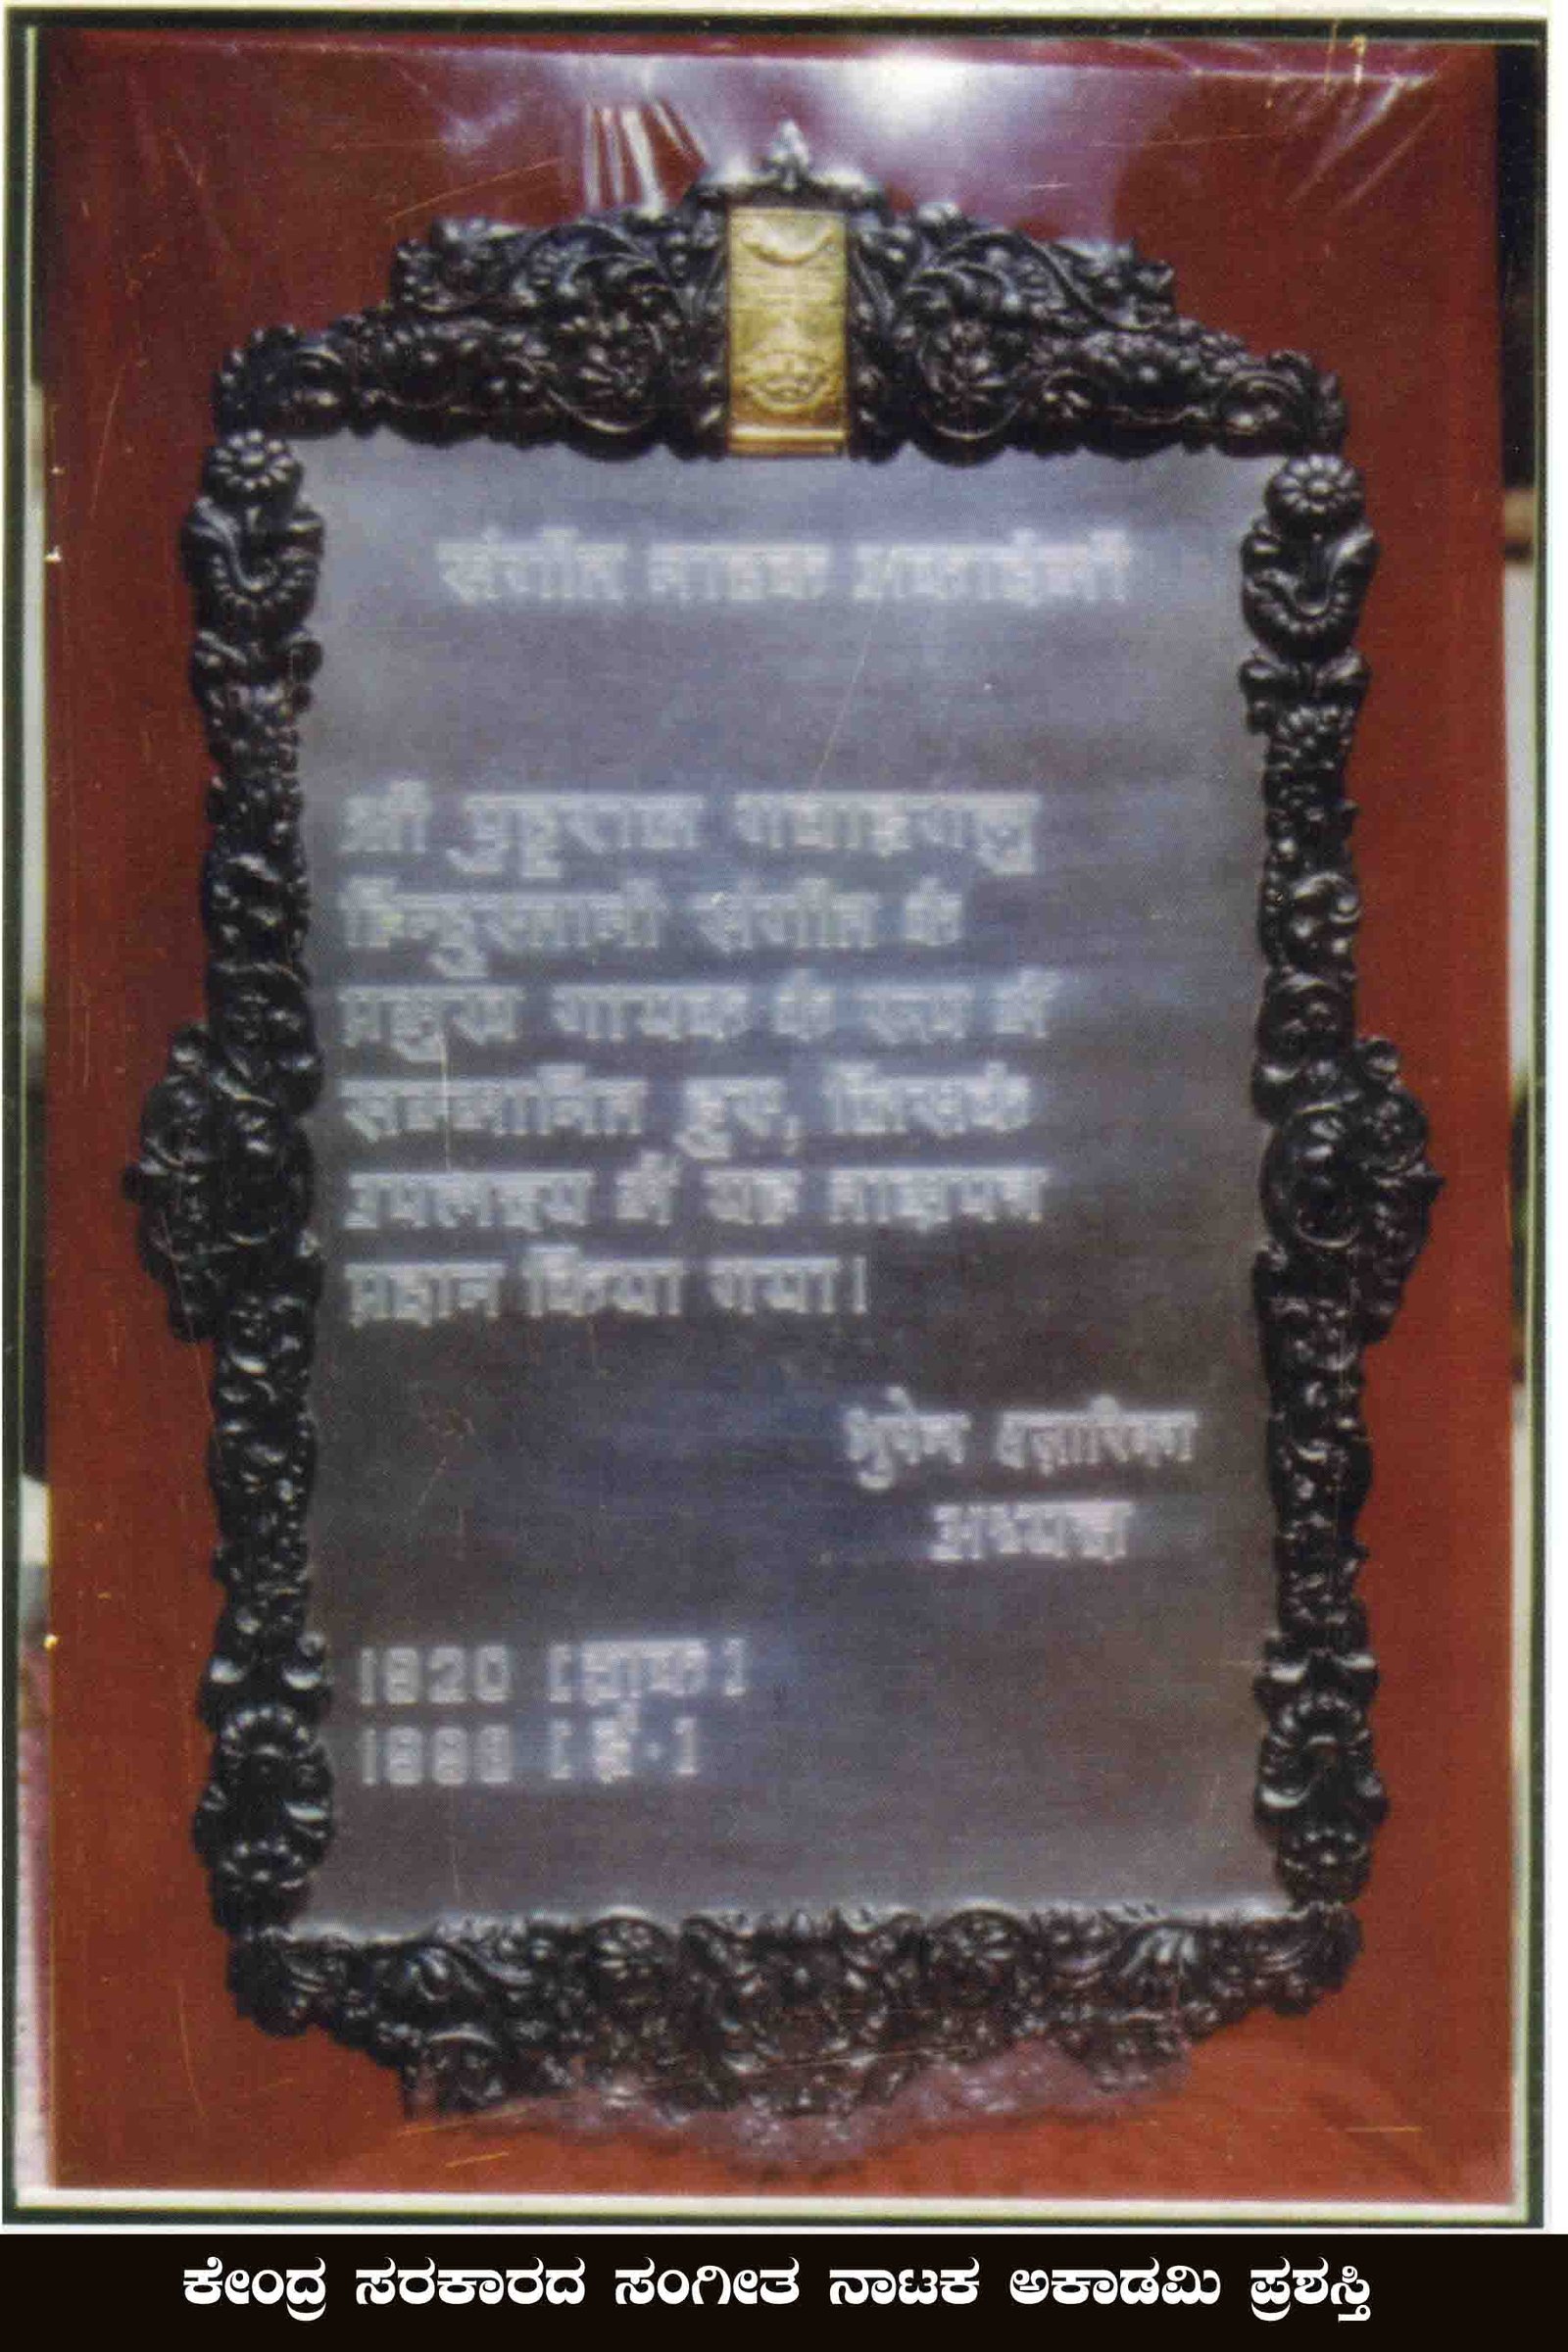 संगीत नाटक अकादेमी
श्री पुट्टराज गवाइगलु
हिन्दुस्तानी संगीत के
प्रमुख गायक के रूप में
सम्मानित हुए, जिसके
उपलक्ष्य में यह ताम्रपत्र
प्रदान किया गया।
भुपेन हज़ारिका
अध्यक्ष
1920 [शक]
[ई.]
ಕೇಂದ್ರ ಸರಕಾರದ ಸಂಗೀತ ನಾಟಕ ಅಕಾಡಮಿ ಪ್ರಶಸ್ತಿ